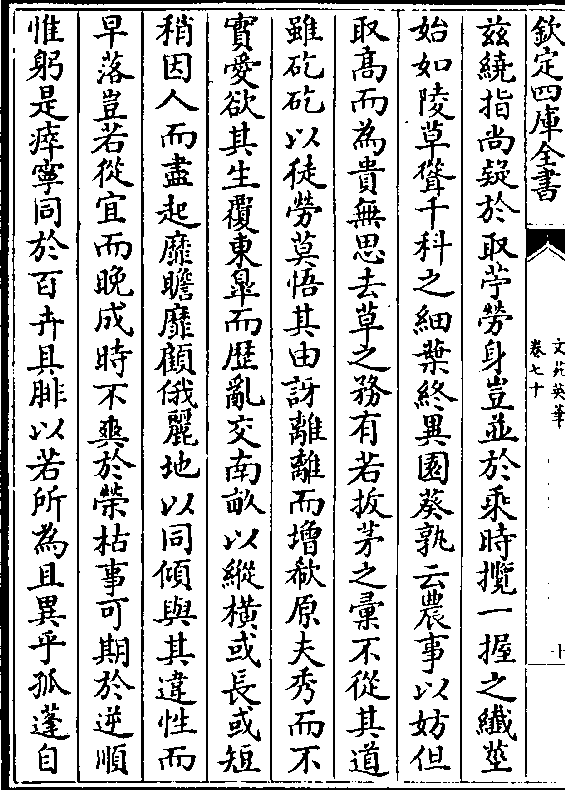 欽定四庫全書
文苑英華
卷七十
十
茲繞指尚疑於取苧勞身豈並於乘時攬一握之纖莖
始如陵草聳千科之細葉終異園葵孰云農事以妨但
取髙而為貴無思去草之務有若拔茅之彚不從其道
雖矻矻以徒勞莫悟其由訝離離而增欷原夫秀而不
實愛欲其生覆東臯而歴亂交南畝以縱橫或長或短
稍因人而盡起靡瞻靡顧俄麗地以同傾與其違性而
早落豈若從宜而晚成時不爽於榮枯事可期於逆順
惟躬是瘁寧同於百卉具腓以若所為且異乎孤蓬自